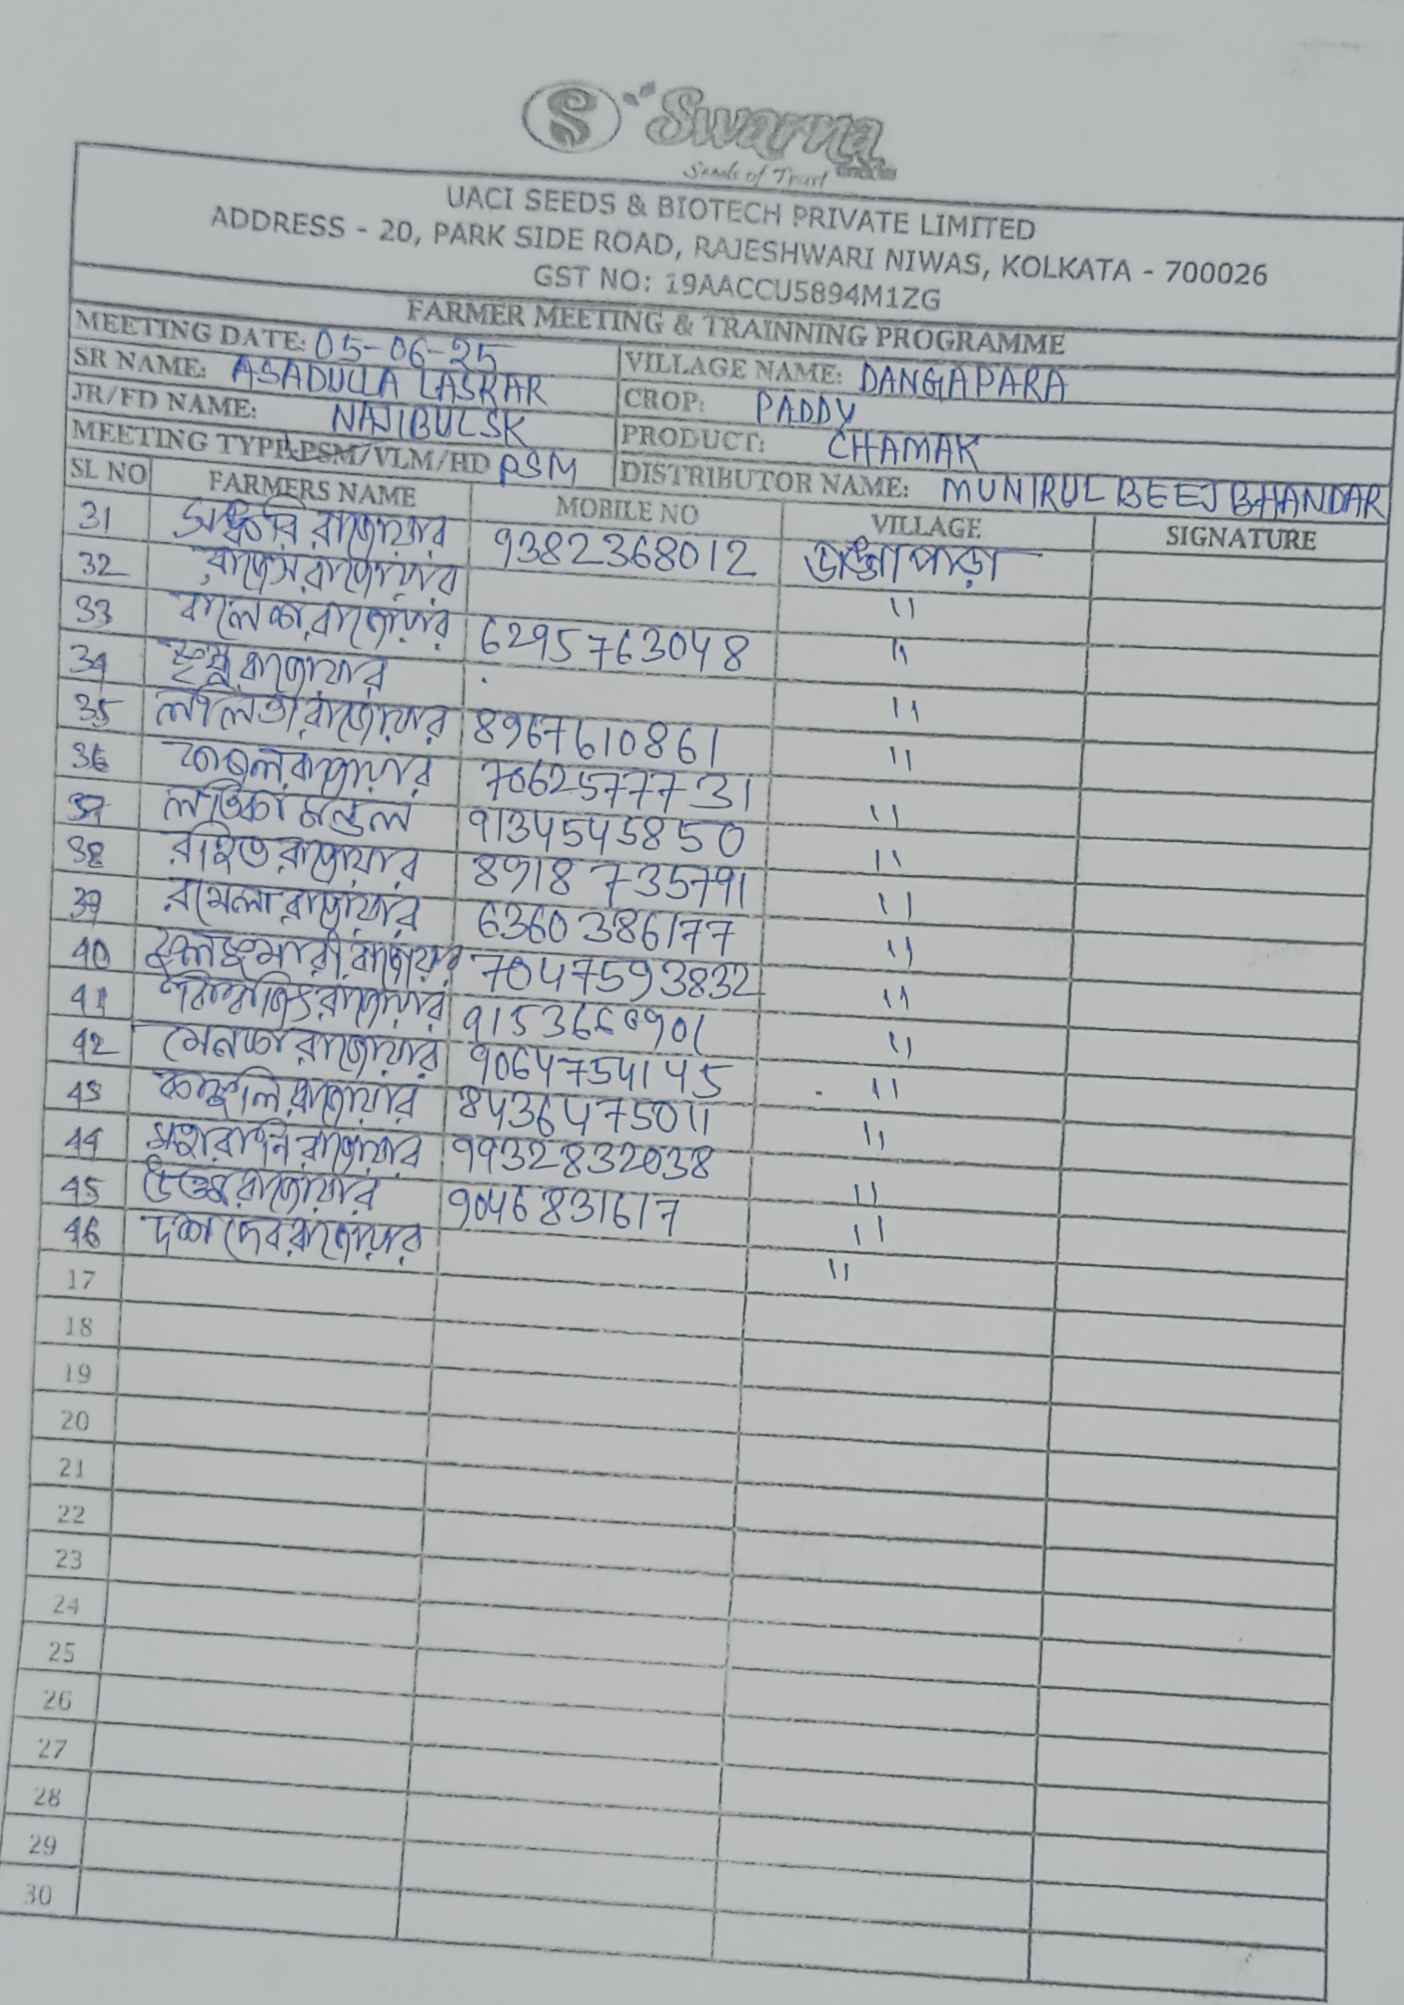 S Swarna
Seeds of Trust
UACI SEEDS & BIOTECH PRIVATE LIMITED
ADDRESS - 20, PARK SIDE ROAD, RAJESHWARI NIWAS, KOLKATA - 700026
GST NO: 19AACCU5894M1ZG
FARMER MEETING & TRAINNING PROGRAMME
MEETING DATE: 05-06-25
SR NAME: ASADULLA LASKAR VILLAGE NAME: DANGAPARA
JR/FD NAME: NAJIBUL SK CROP: PADDY
MEETING TYPE: PSM/VLM/HD PSM PRODUCT: CHAMAK
DISTRIBUTOR NAME: MUNIRUL BEEJ BHANDAR
SL NO FARMERS NAME MOBILE NO VILLAGE SIGNATURE
31 রাজোয়ার 9382368012 ডাঙ্গাপাড়া
32 রাজেস রাজোয়ার "
33 রাজোয়ার 6295763048 "
34 রাজোয়ার "
35 ললিতা রাজোয়ার 8967610861 "
36 রাজোয়ার 7062577731 "
37 লতিকা মন্ডল 9134545850 "
38 রাজোয়ার 8918735791 "
39 রমেলা রাজোয়ার 6360386177 "
40 ফুলকুমারী রাজোয়ার 7047593832 "
41 বিশ্বজিৎ রাজোয়ার "
42 মেনকা রাজোয়ার 9064754145 "
43 রাজোয়ার 8436475011 "
44 মহারানি রাজোয়ার 9932832038 "
45 উত্তম রাজোয়ার 9046831617 "
46 রাজোয়ার "
17
18
19
20
21
22
23
24
25
26
27
28
29
30